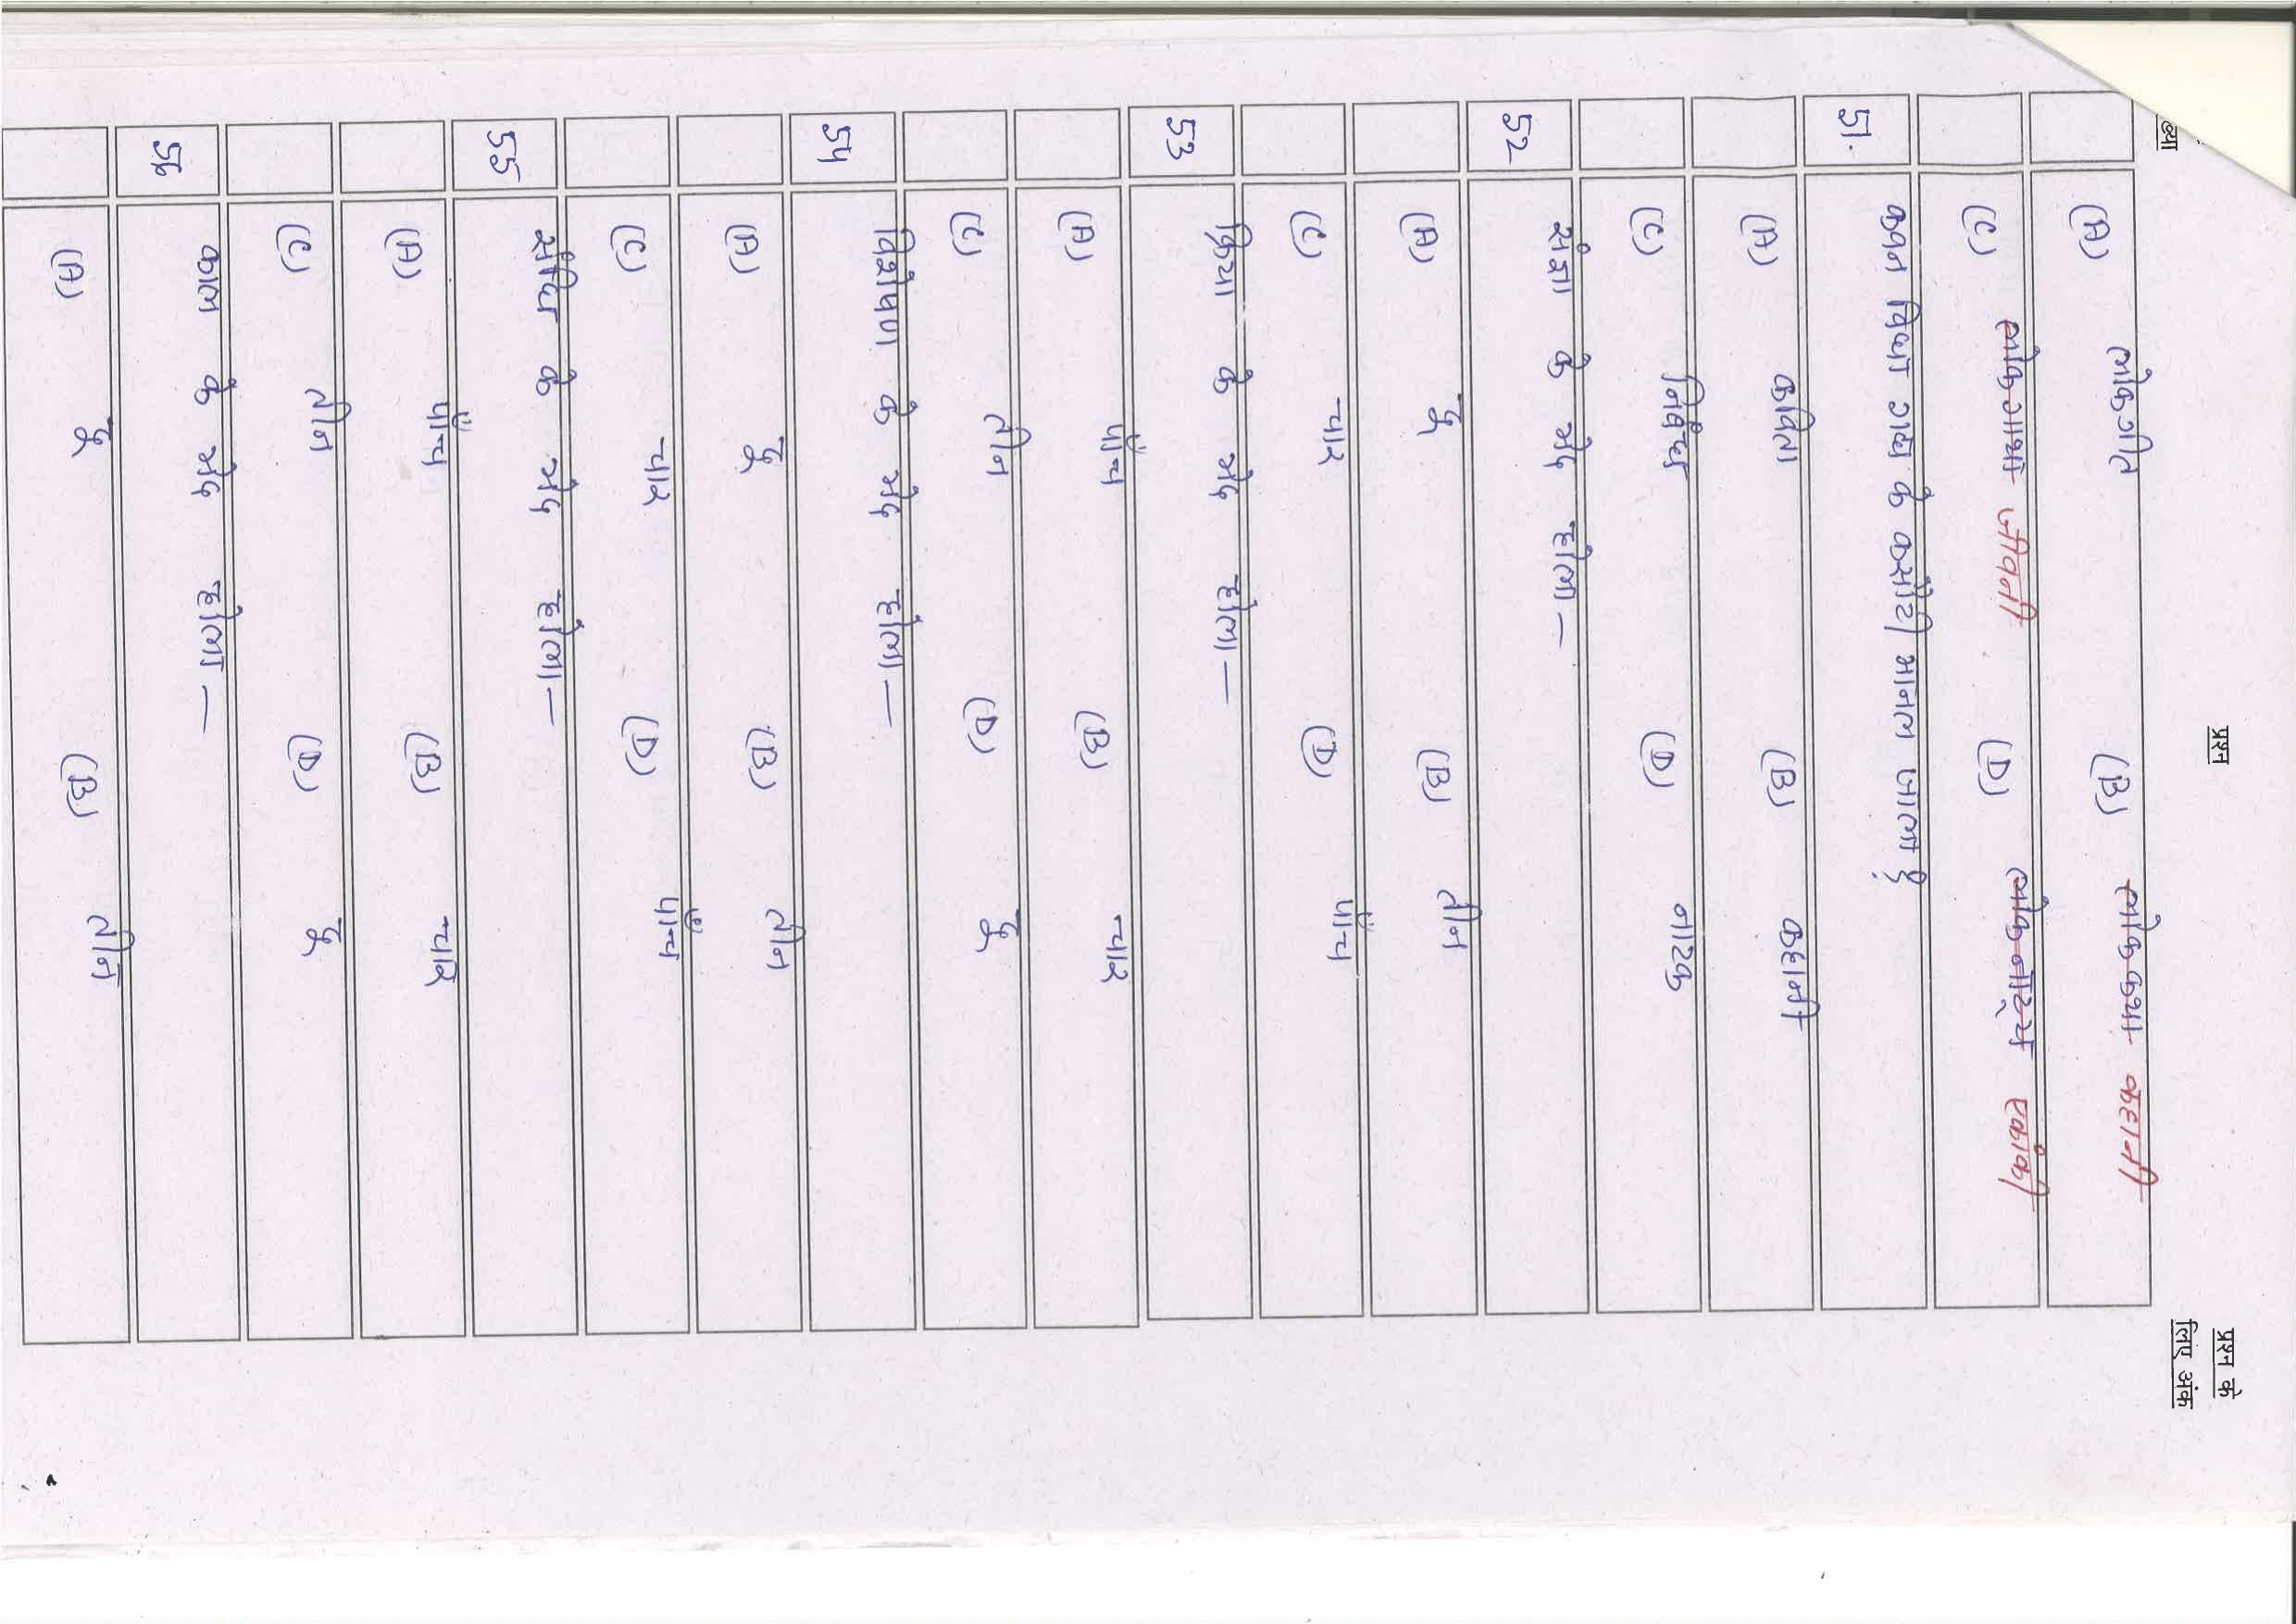 ख्या प्रश्न प्रश्न के
लिए अंक
(A) लोकगीत (B) लोककथा कहानी
(C) लोकगाथा जीवनी (D) लोकनाट्य एकांकी
51. कवन विधा गद्य के कसौटी मानल जाला?
(A) कविता (B) कहानी
(C) निबंध (D) नाटक
52 संज्ञा के भेद होला —
(A) दू (B) तीन
(C) चार (D) पाँच
53 क्रिया के भेद होला —
(A) पाँच (B) चार
(C) तीन (D) दू
54 विशेषण के भेद होला —
(A) दू (B) तीन
(C) चार (D) पाँच
55 संधि के भेद होला —
(A) पाँच (B) चारि
(C) तीन (D) दू
56 काल के भेद होला —
(A) दू (B) तीन